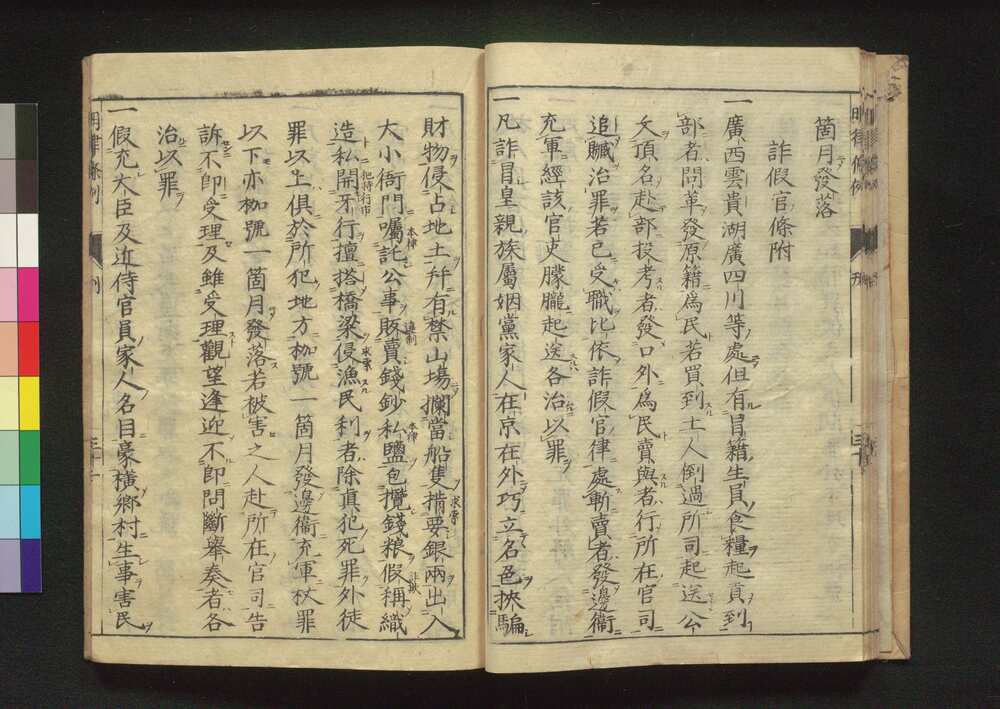 箇月發落
詐假官條附
一廣西雲貴湖廣四川等處但有冐籍生員食糧起貢到
部者問革發原籍爲民若買到土人倒過所司起送公
文頂名赴部投考者發口外爲民賣與者行所在官司
追贓治罪若已受職比依詐假官律處斬賣者發邊衞
充軍經該官吏朦朧起送各治以罪
一凡詐冐皇親族屬姻黨家人在京在外巧立名色挾騙
財物侵占地土幷有禁山塲攔當船隻掯要銀兩出入
大小衙門囑託公事販賣錢鈔私鹽包攬錢粮假稱織
造私開牙行擅搭橋梁侵漁民利者除眞犯死罪外徒
罪以上俱於所犯地方枷號一箇月發邊衞充軍杖罪
以下亦枷號一箇月發落若被害之人赴所在官司告
訴不卽受理及雖受理觀望逢迎不卽問斷擧奏者各
治以罪
一假充大臣及近侍官員家人名目豪橫鄕村生事害民
明律條例